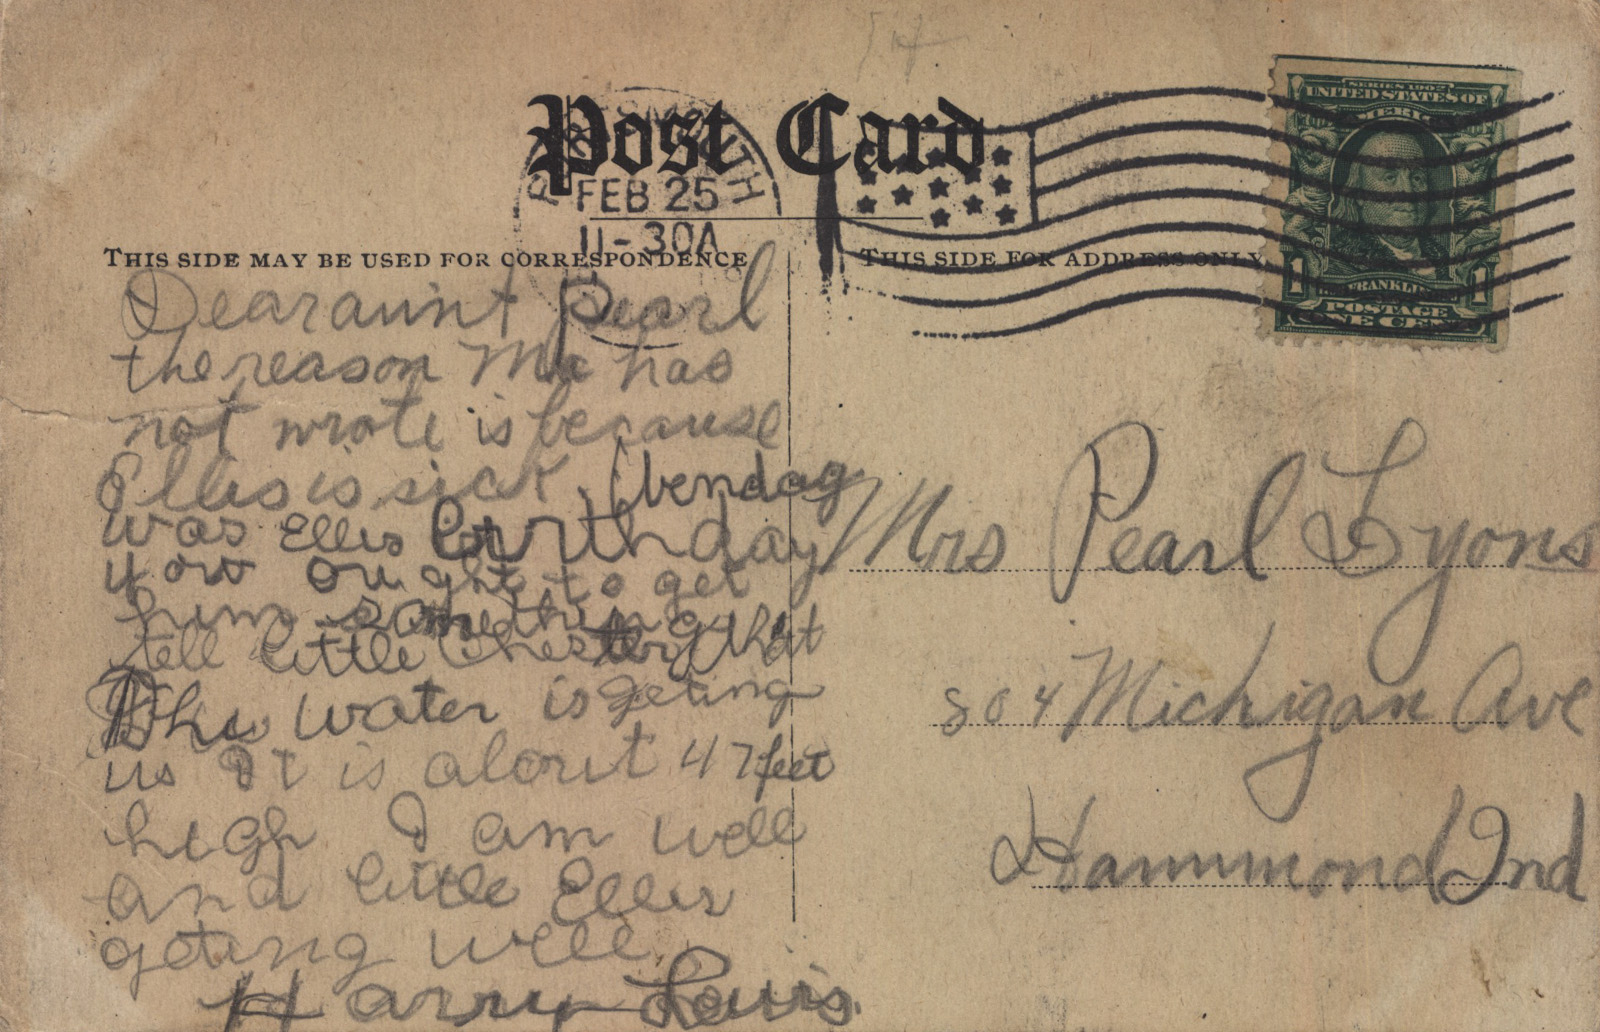 Post Card
PORTSMOUTH
FEB 25
11-30A
THIS SIDE MAY BE USED FOR CORRESPONDENCE
THIS SIDE FOR ADDRESS ONLY
SERIES 1902
UNITED STATES OF
AMERICA
1 FRANKLIN 1
POSTAGE
ONE CENT
Dear aunt Pearl
the reason Ma has
not wrote is because
Ellis is sick.
was Ellis birthday
yow ought to get
him something
tell little Chester that
The water is geting
us It is about 47 feet
high I am well
and little Ellis
geting well.
Harry Louis.
Mrs Pearl Lyons
804 Michigan Ave
Hammond Ind